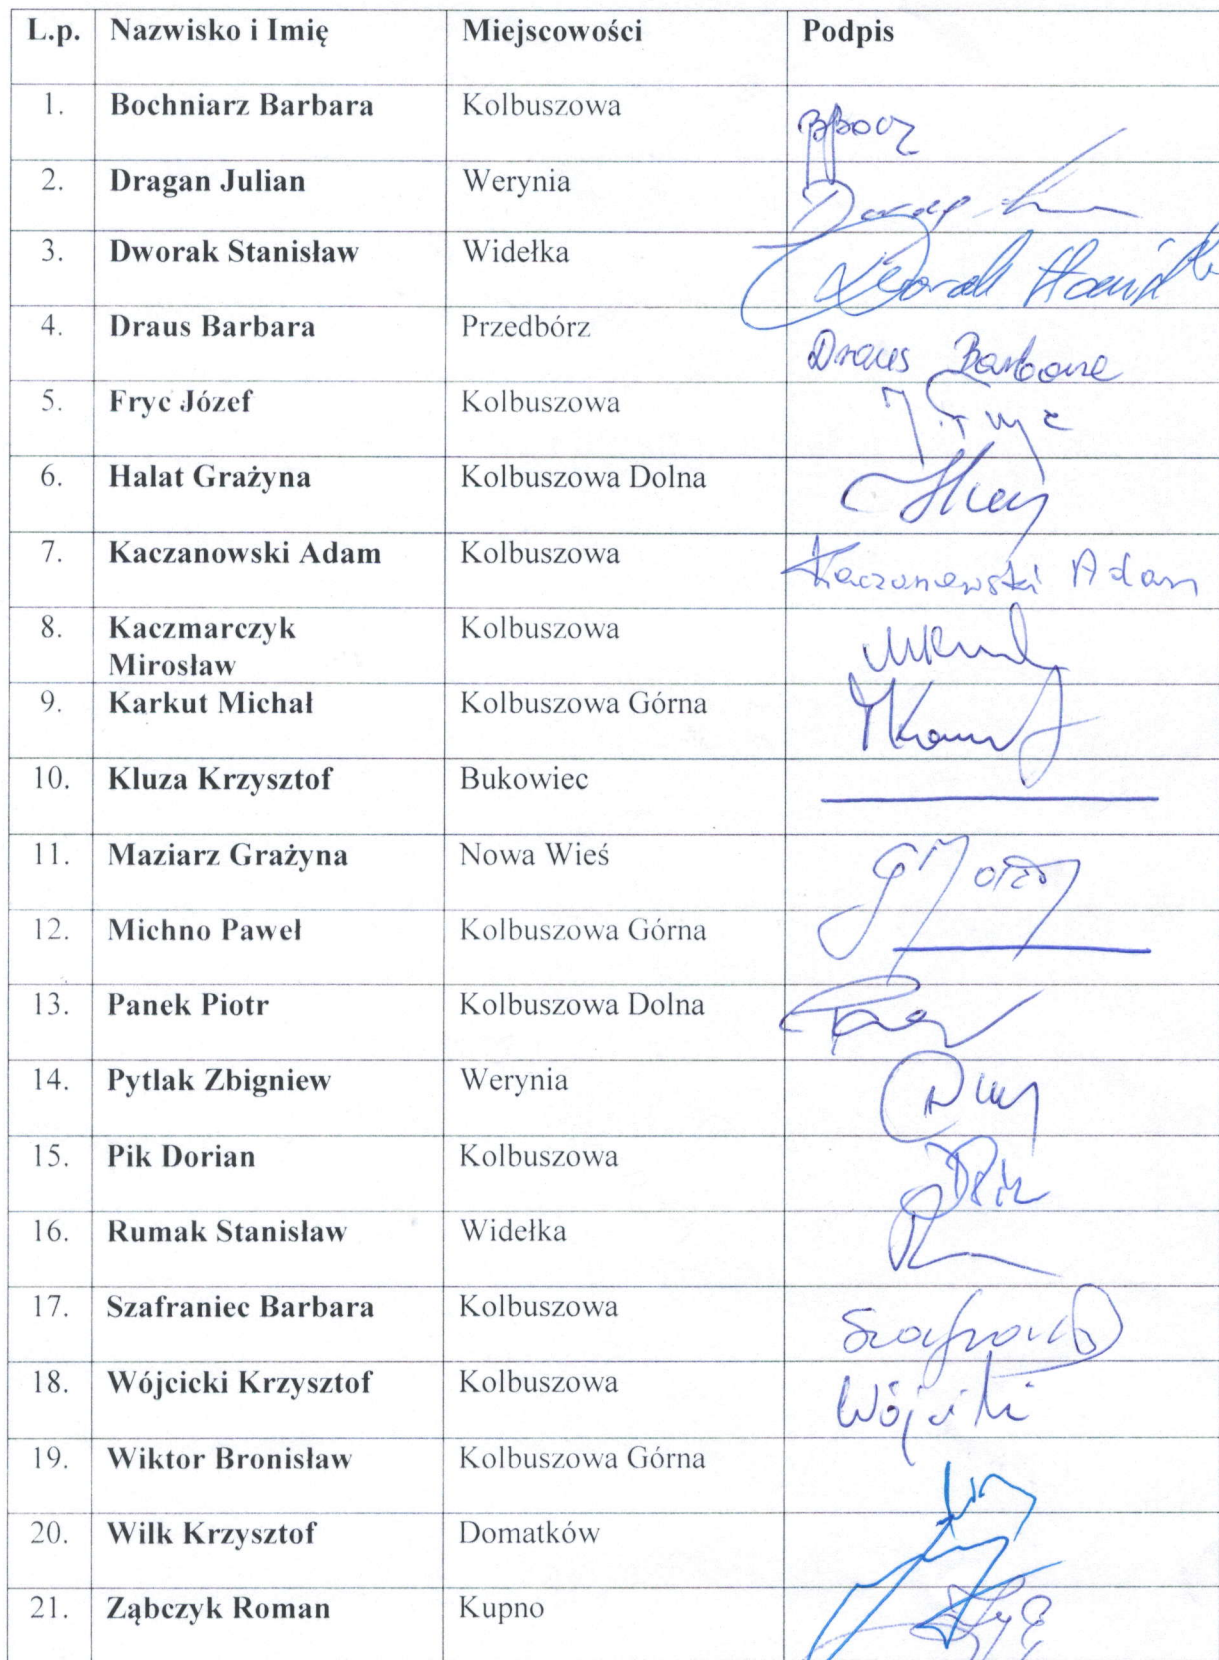 L.p. Nazwisko i Imię Miejscowości Podpis
1. Bochniarz Barbara Kolbuszowa
2. Dragan Julian Werynia
3. Dworak Stanisław Widełka Dworak Stanisł
4. Draus Barbara Przedbórz Draus Barbara
5. Fryc Józef Kolbuszowa J. Fryc
6. Halat Grażyna Kolbuszowa Dolna
7. Kaczanowski Adam Kolbuszowa Kaczanowski Adam
8. Kaczmarczyk Kolbuszowa
Mirosław
9. Karkut Michał Kolbuszowa Górna
10. Kluza Krzysztof Bukowiec
11. Maziarz Grażyna Nowa Wieś
12. Michno Paweł Kolbuszowa Górna
13. Panek Piotr Kolbuszowa Dolna
14. Pytlak Zbigniew Werynia
15. Pik Dorian Kolbuszowa DPik
16. Rumak Stanisław Widełka
17. Szafraniec Barbara Kolbuszowa
18. Wójcicki Krzysztof Kolbuszowa Wójcicki
19. Wiktor Bronisław Kolbuszowa Górna
20. Wilk Krzysztof Domatków
21. Ząbczyk Roman Kupno